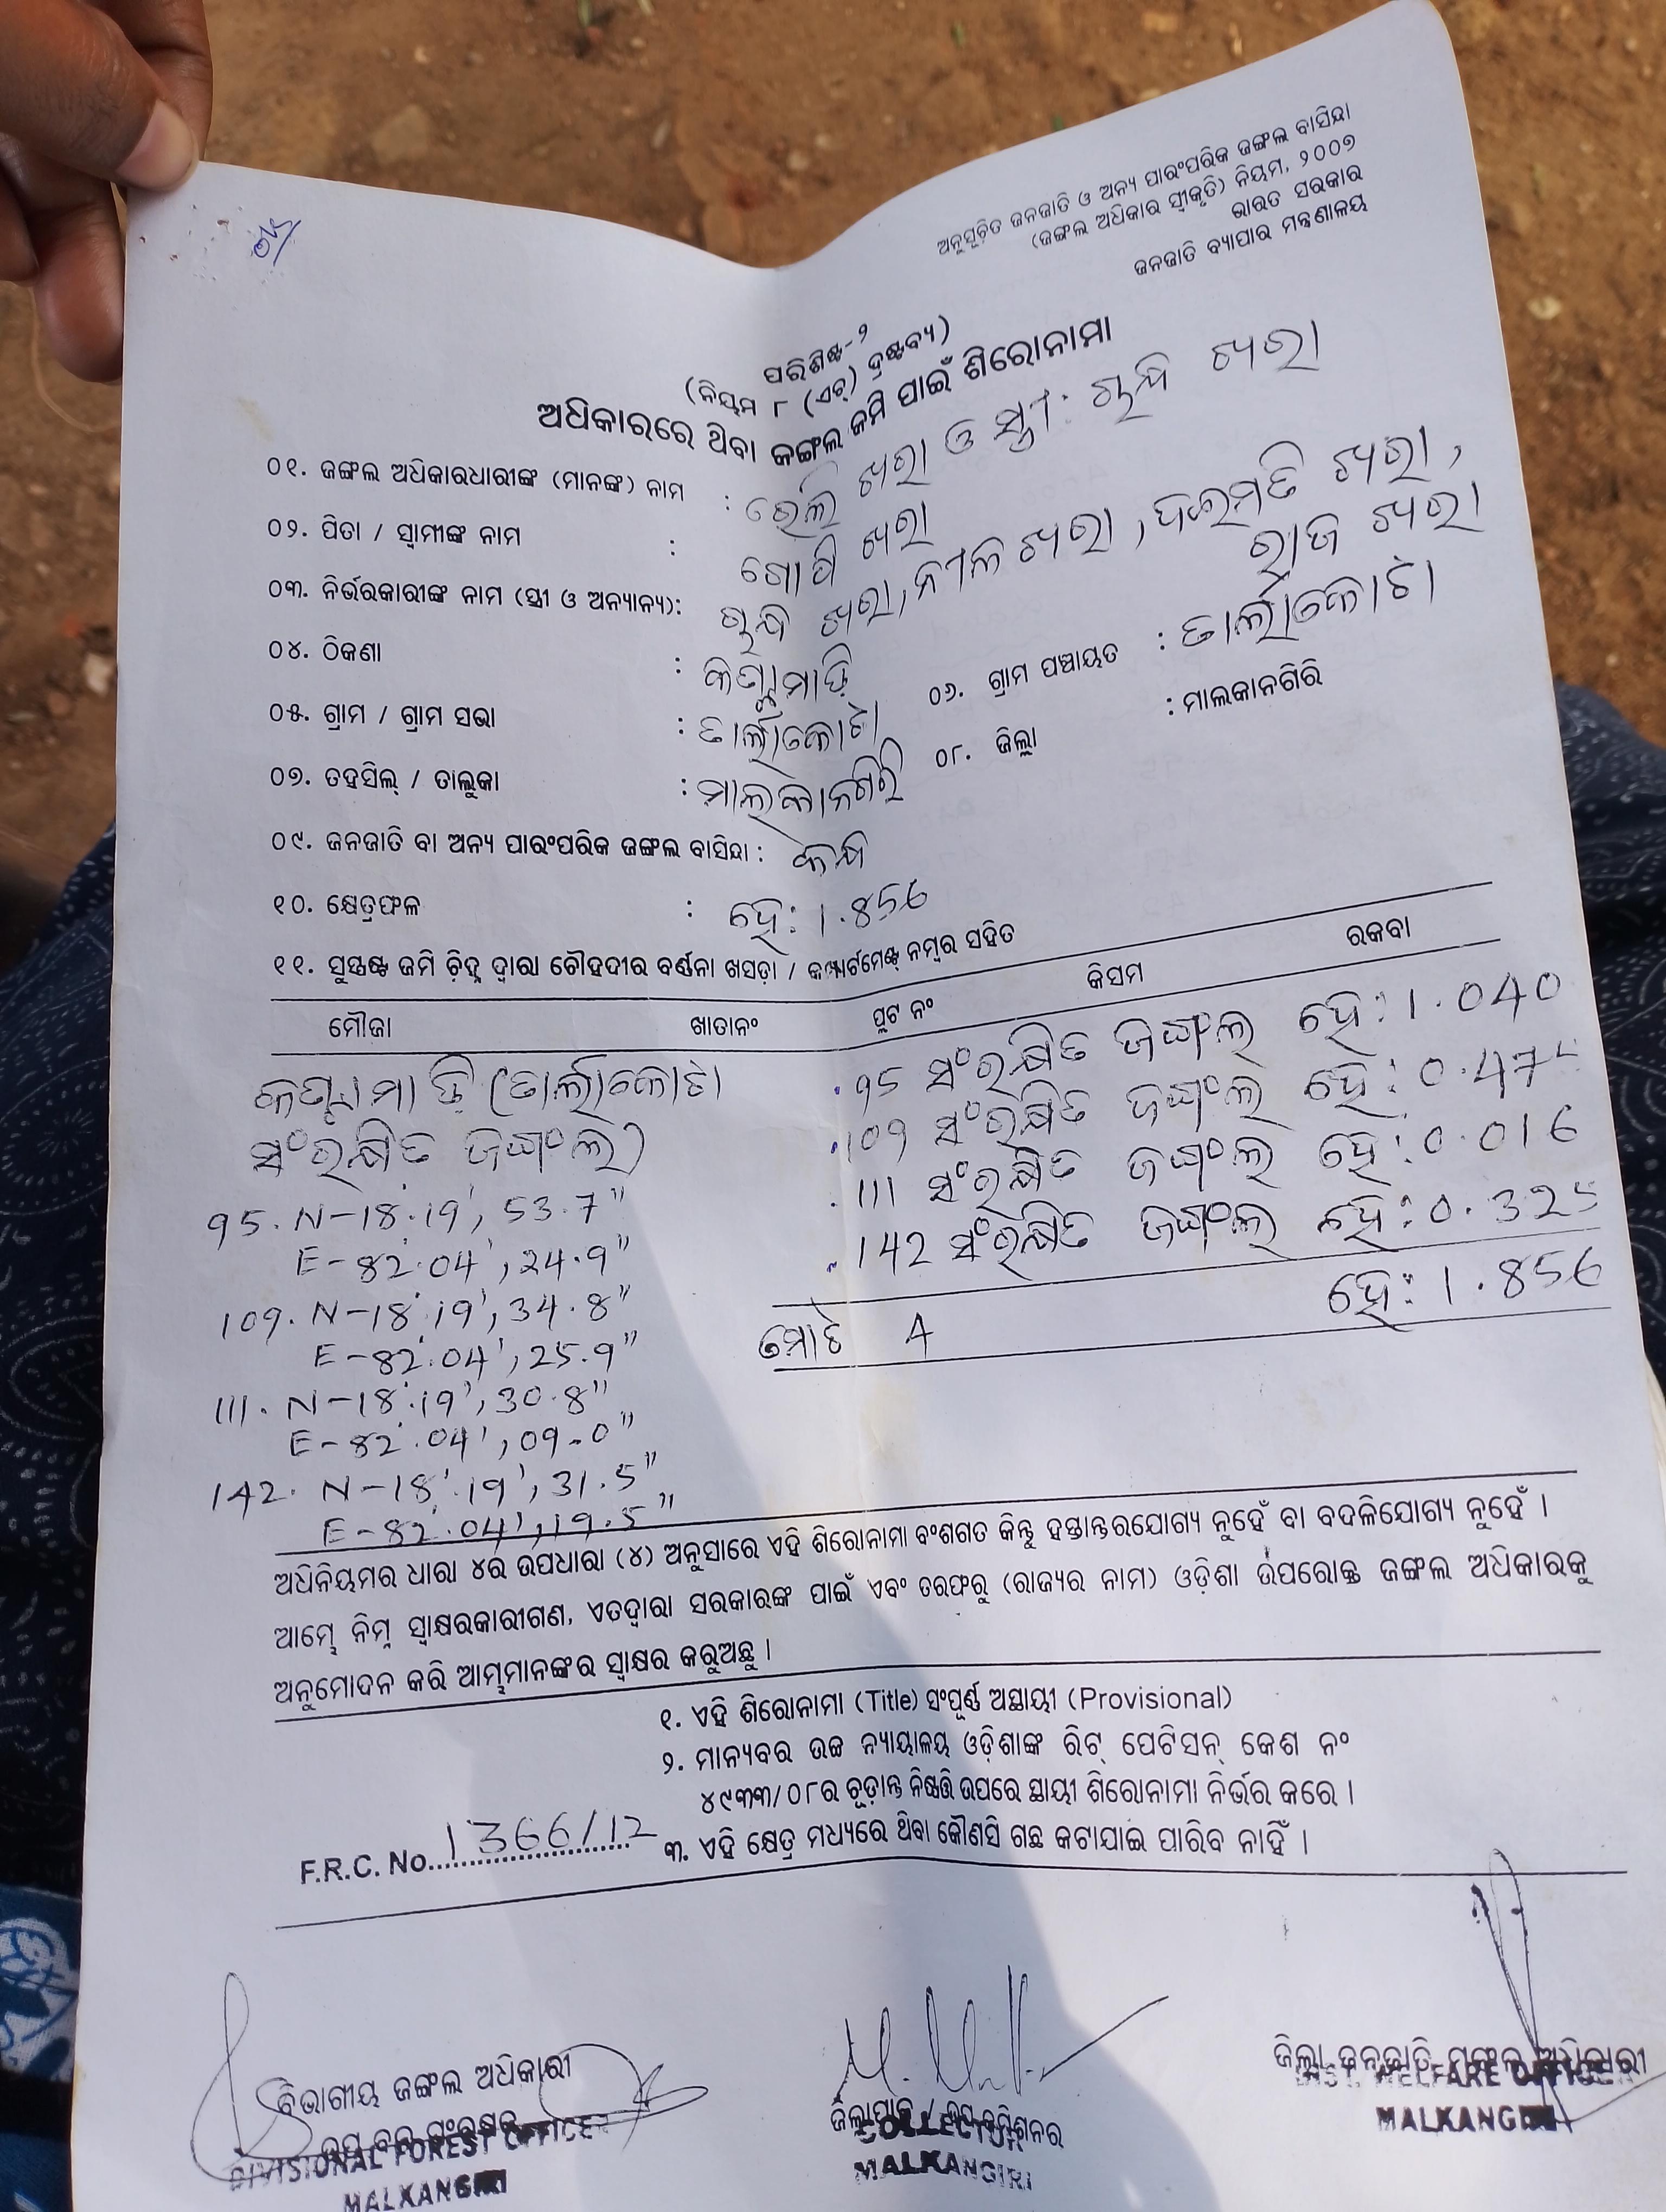 ଅନୁସୂଚିତ ଜନଜାତି ଓ ଅନ୍ୟ ପାରଂପରିକ ଜଙ୍ଗଲ ବାସିନ୍ଦା
(ଜଙ୍ଗଲ ଅଧିକାର ସ୍ୱୀକୃତି) ନିୟମ, ୨୦୦୭
ଭାରତ ସରକାର
ଜନଜାତି ବ୍ୟାପାର ମନ୍ତ୍ରଣାଳୟ
ପରିଶିଷ୍ଟ-୨
(ନିୟମ ୮ (ଏଚ୍) ଦ୍ରଷ୍ଟବ୍ୟ)
ଅଧିକାରରେ ଥିବା ଜଙ୍ଗଲ ଜମି ପାଇଁ ଶିରୋନାମା
୦୧. ଜଙ୍ଗଲ ଅଧିକାରଧାରୀଙ୍କ (ମାନଙ୍କ) ନାମ : ଖରା ଓ ସ୍ତ୍ରୀ: ଖରା
୦୨. ପିତା / ସ୍ୱାମୀଙ୍କ ନାମ : ଗୋପି ଖରା
୦୩. ନିର୍ଭରକାରୀଙ୍କ ନାମ (ସ୍ତ୍ରୀ ଓ ଅନ୍ୟାନ୍ୟ): ଖରା, ନୀଳ ଖରା, ଖରା,
ରାଜ ଖରା
୦୪. ଠିକଣା :
୦୫. ଗ୍ରାମ / ଗ୍ରାମ ସଭା : ତାର୍ଲାକୋଟା ୦୬. ଗ୍ରାମ ପଞ୍ଚାୟତ : ତାର୍ଲାକୋଟା
୦୭. ତହସିଲ୍ / ତାଲୁକା : ମାଲକାନଗିରି ୦୮. ଜିଲ୍ଲା : ମାଲକାନଗିରି
୦୯. ଜନଜାତି ବା ଅନ୍ୟ ପାରଂପରିକ ଜଙ୍ଗଲ ବାସିନ୍ଦା : କନ୍ଧ
୧୦. କ୍ଷେତ୍ରଫଳ : ହେ: 1.856
୧୧. ସୁସ୍ପଷ୍ଟ ଜମି ଚିହ୍ନ ଦ୍ୱାରା ଚୌହଦୀର ବର୍ଣ୍ଣନା ଖସଡ଼ା / କମ୍ପାର୍ଟମେଣ୍ଟ ନମ୍ବର ସହିତ
ମୌଜା ଖାତାନଂ ପ୍ଲଟ ନଂ କିସମ ରକବା
(ତାର୍ଲାକୋଟା 95 ସଂରକ୍ଷିତ ଜଙ୍ଗଲ ହେ: 1.040
ସଂରକ୍ଷିତ ଜଙ୍ଗଲ) 109 ସଂରକ୍ଷିତ ଜଙ୍ଗଲ ହେ: 0.475
111 ସଂରକ୍ଷିତ ଜଙ୍ଗଲ ହେ: 0.016
142 ସଂରକ୍ଷିତ ଜଙ୍ଗଲ ହେ: 0.325
ମୋଟ 4 ହେ: 1.856
95. N-18°.19', 53.7"
E-82°.04', 24.9"
109. N-18°.19', 34.8"
E-82°.04', 25.9"
111. N-18°.19', 30.8"
E-82°.04', 09.0"
142. N-18°.19', 31.5"
E-82°.04', 19.5"
ଅଧିନିୟମର ଧାରା ୪ର ଉପଧାରା (୪) ଅନୁସାରେ ଏହି ଶିରୋନାମା ବଂଶଗତ କିନ୍ତୁ ହସ୍ତାନ୍ତରଯୋଗ୍ୟ ନୁହେଁ ବା ବଦଳିଯୋଗ୍ୟ ନୁହେଁ ।
ଆମ୍ଭେ ନିମ୍ନ ସ୍ୱାକ୍ଷରକାରୀଗଣ, ଏତଦ୍ୱାରା ସରକାରଙ୍କ ପାଇଁ ଏବଂ ତରଫରୁ (ରାଜ୍ୟର ନାମ) ଓଡ଼ିଶା ଉପରୋକ୍ତ ଜଙ୍ଗଲ ଅଧିକାରକୁ
ଅନୁମୋଦନ କରି ଆମ୍ଭମାନଙ୍କର ସ୍ୱାକ୍ଷର କରୁଅଛୁ ।
୧. ଏହି ଶିରୋନାମା (Title) ସଂପୂର୍ଣ୍ଣ ଅସ୍ଥାୟୀ (Provisional)
୨. ମାନ୍ୟବର ଉଚ୍ଚ ନ୍ୟାୟାଳୟ ଓଡ଼ିଶାଙ୍କ ରିଟ୍ ପେଟିସନ୍ କେଶ ନଂ
୪୯୩୩/୦୮ର ଚୂଡ଼ାନ୍ତ ନିଷ୍ପତ୍ତି ଉପରେ ସ୍ଥାୟୀ ଶିରୋନାମା ନିର୍ଭର କରେ ।
୩. ଏହି କ୍ଷେତ୍ର ମଧ୍ୟରେ ଥିବା କୌଣସି ଗଛ କଟାଯାଇ ପାରିବ ନାହିଁ ।
F.R.C. No. 1366/12
ବିଭାଗୀୟ ଜଙ୍ଗଲ ଅଧିକାରୀ
ଉପ ବନ ସଂରକ୍ଷକ
DIVISIONAL FOREST OFFICER
MALKANGIRI
ଜିଲ୍ଲାପାଳ / ଉପ କମିଶନର
COLLECTOR
MALKANGIRI
ଜିଲ୍ଲା ଜନଜାତି ମଙ୍ଗଳ ଅଧିକାରୀ
DIST. WELFARE OFFICER
MALKANGIRI